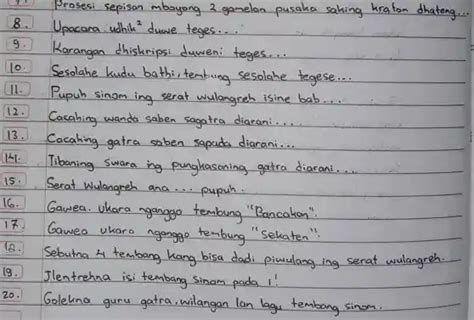 7. Prosesi sepisan mboyong 2 gamelan pusaka saking kraton dhateng...
8. Upacara udhik² duwe teges....
9. Karangan dhiskripsi duweni teges...
10. Sesolahe kudu bathi, tembung sesolahe tegese...
11. Pupuh sinom ing serat wulangreh isine bab...
12. Cacahing wanda saben sagatra diarani...
13. Cacahing gatra saben sapada diarani...
14. Tibaning swara ing pungkasaning gatra diarani....
15. Serat Wulangreh ana ... pupuh.
16. Gawea. Ukara nganggo tembung "Bancakan".
17. Gawea Ukara nganggo tembung "Sekaten".
18. Sebutna 4 tembang kang bisa dadi piwulang ing serat wulangreh.
19. Jlentrehna isi tembang Sinom pada 1!
20. Golekna guru gatra, wilangan lan lagu tembang sinom.